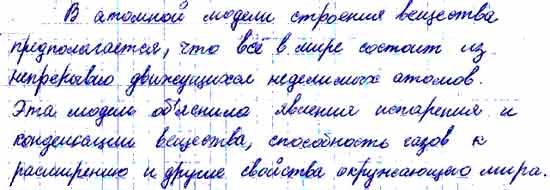 В атомной модели строения вещества
предполагается, что всё в мире состоит из
непрерывно движущихся неделимых атомов.
Эта модель объяснила явления испарения и
конденсации вещества, способность газов к
расширению и другие свойства окружающего мира.